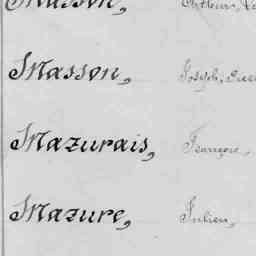 Masson,
Masson, Joseph,
Mazurais, François,
Mazure, Julien,